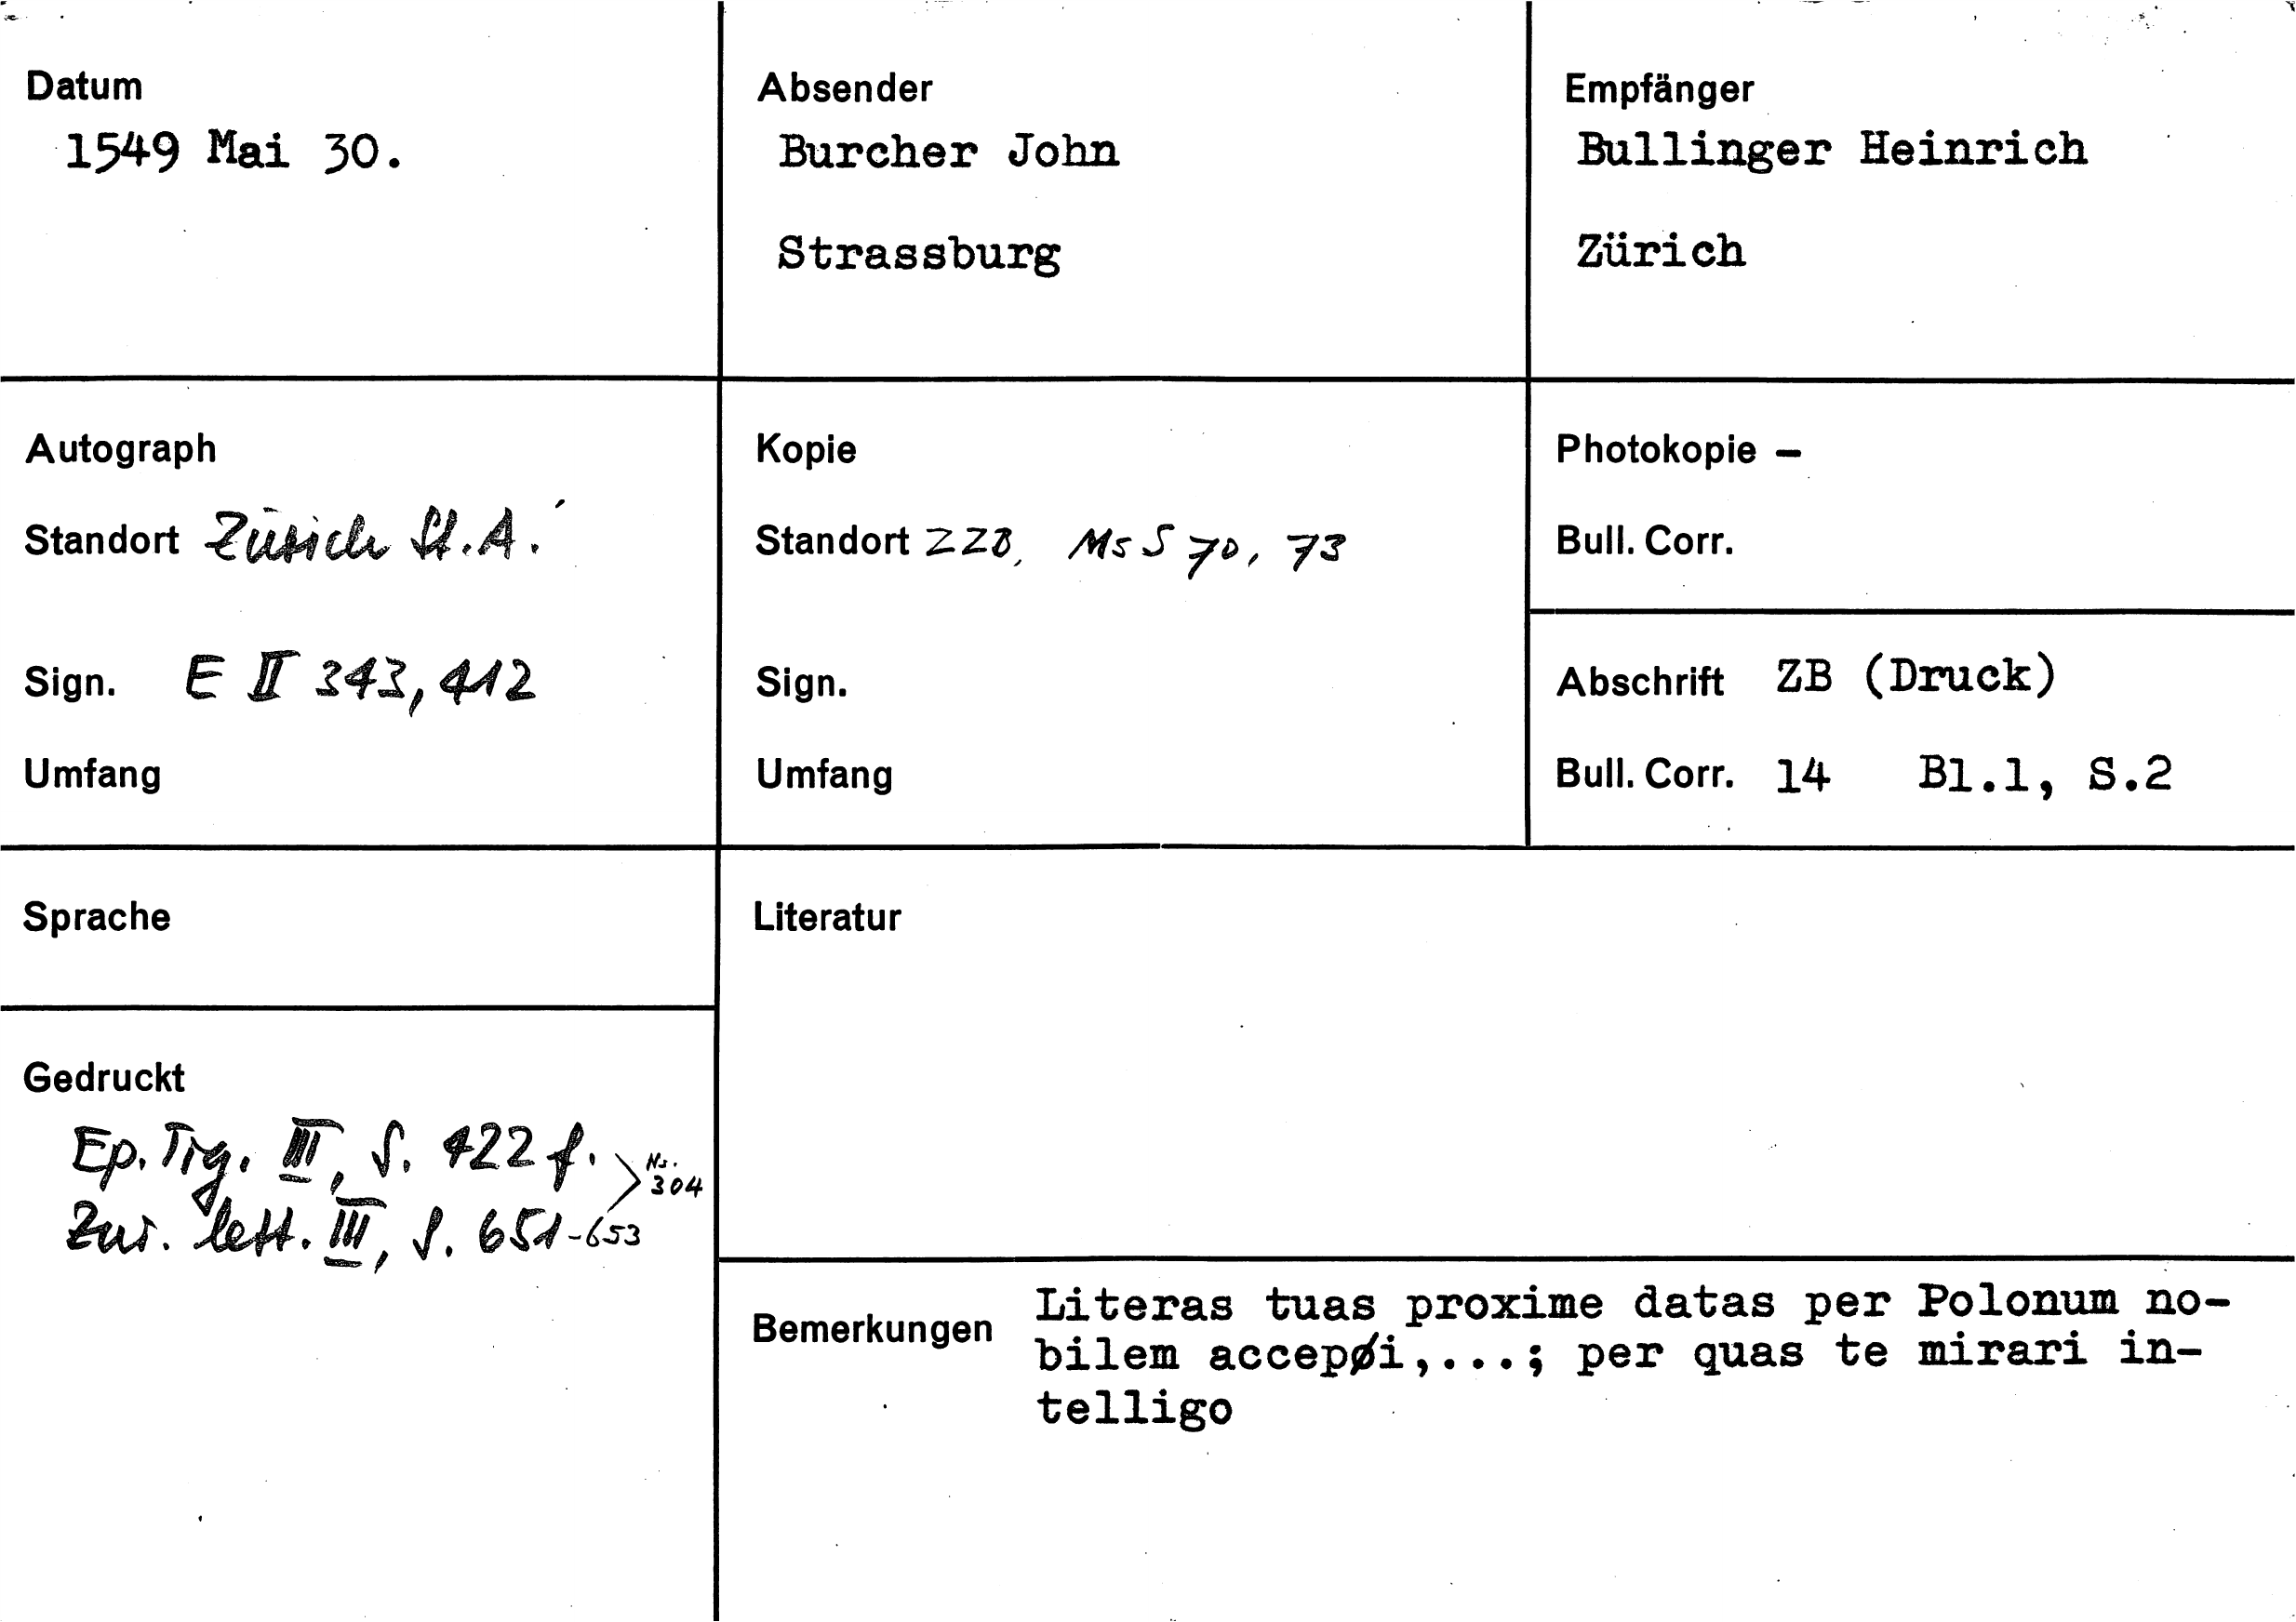 Datum
1549 Mai 30.
Absender
Burcher John
Strassburg
Empfänger
Bullinger Heinrich
Zürich
Autograph
Standort Zürich St.A.
Sign. E II 343, 412
Umfang
Kopie
Standort ZZB, Ms S 70, 73
Sign.
Umfang
Photokopie –
Bull. Corr.
Abschrift ZB (Druck)
Bull. Corr. 14 Bl.1, S.2
Sprache
Gedruckt
Ep. Tig. III, S. 422 f.
Zur. lett. III, S. 651-653
Nr. 304
Literatur
Bemerkungen
Literas tuas proxime datas per Polonum no-
bilem accepi,...; per quas te mirari in-
telligo